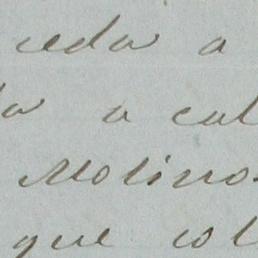 ceda a
a cal
Molino
que col